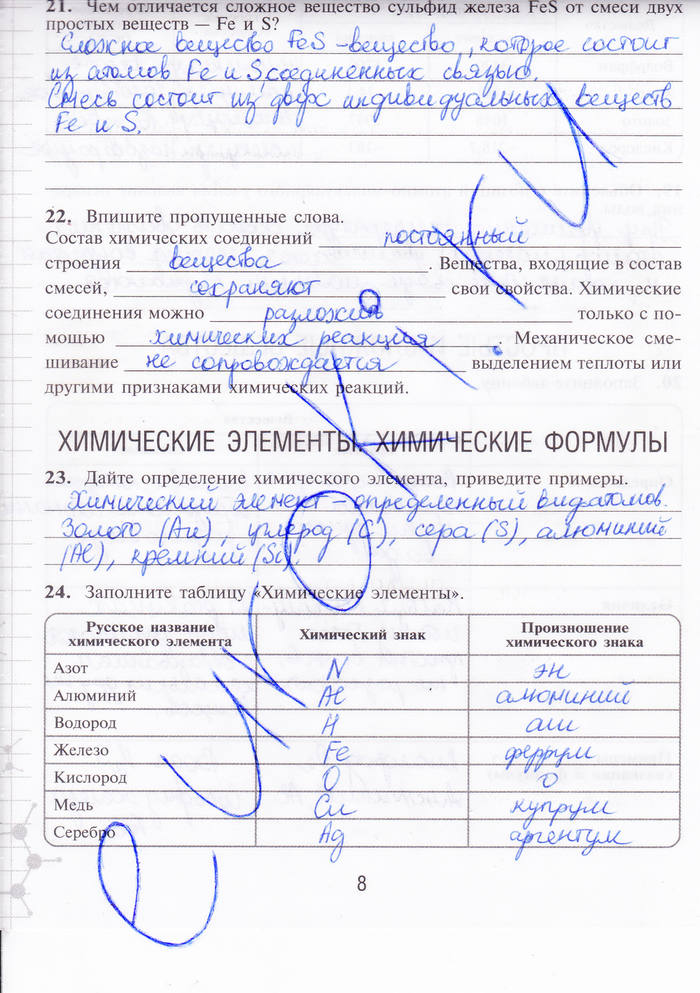 21. Чем отличается сложное вещество сульфид железа FeS от смеси двух
простых веществ — Fe и S?
Сложное вещество FeS - вещество, которое состоит
из атомов Fe и S, соединенных связью.
Смесь состоит из двух индивидуальных веществ
Fe и S.
22. Впишите пропущенные слова.
Состав химических соединений постоянный
строения вещества. Вещества, входящие в состав
смесей, сохраняют свои свойства. Химические
соединения можно разложить только с по-
мощью химических реакция. Механическое сме-
шивание не сопровождается выделением теплоты или
другими признаками химических реакций.
ХИМИЧЕСКИЕ ЭЛЕМЕНТЫ. ХИМИЧЕСКИЕ ФОРМУЛЫ
23. Дайте определение химического элемента, приведите примеры.
Химический элемент – определенный вид атомов.
Золото (Au), углерод (C), сера (S), алюминий
(Al), кремний (Si).
24. Заполните таблицу «Химические элементы».
Русское название химического элемента Химический знак Произношение химического знака
Азот N эн
Алюминий Al алюминий
Водород H аш
Железо Fe феррум
Кислород O о
Медь Cu купрум
Серебро Ag аргентум
8